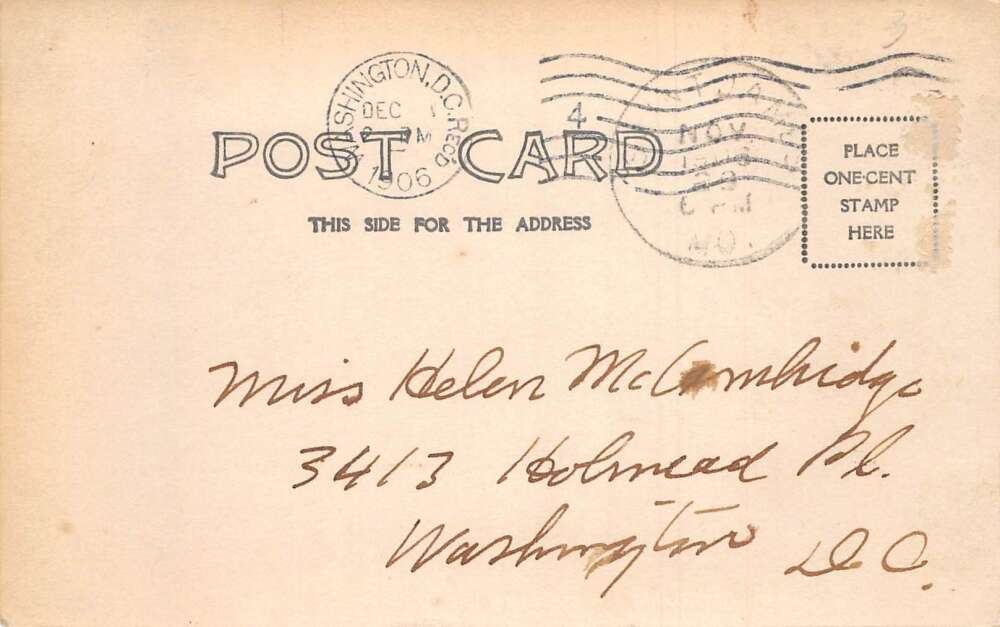 3
WASHINGTON, D.C. REC'D
DEC 1
PM
1906
4
NOV
6 PM
MO.
POST CARD
THIS SIDE FOR THE ADDRESS
PLACE
ONE-CENT
STAMP
HERE
Miss Helen McCambridge
3413 Holmead Pl.
Washington D.C.